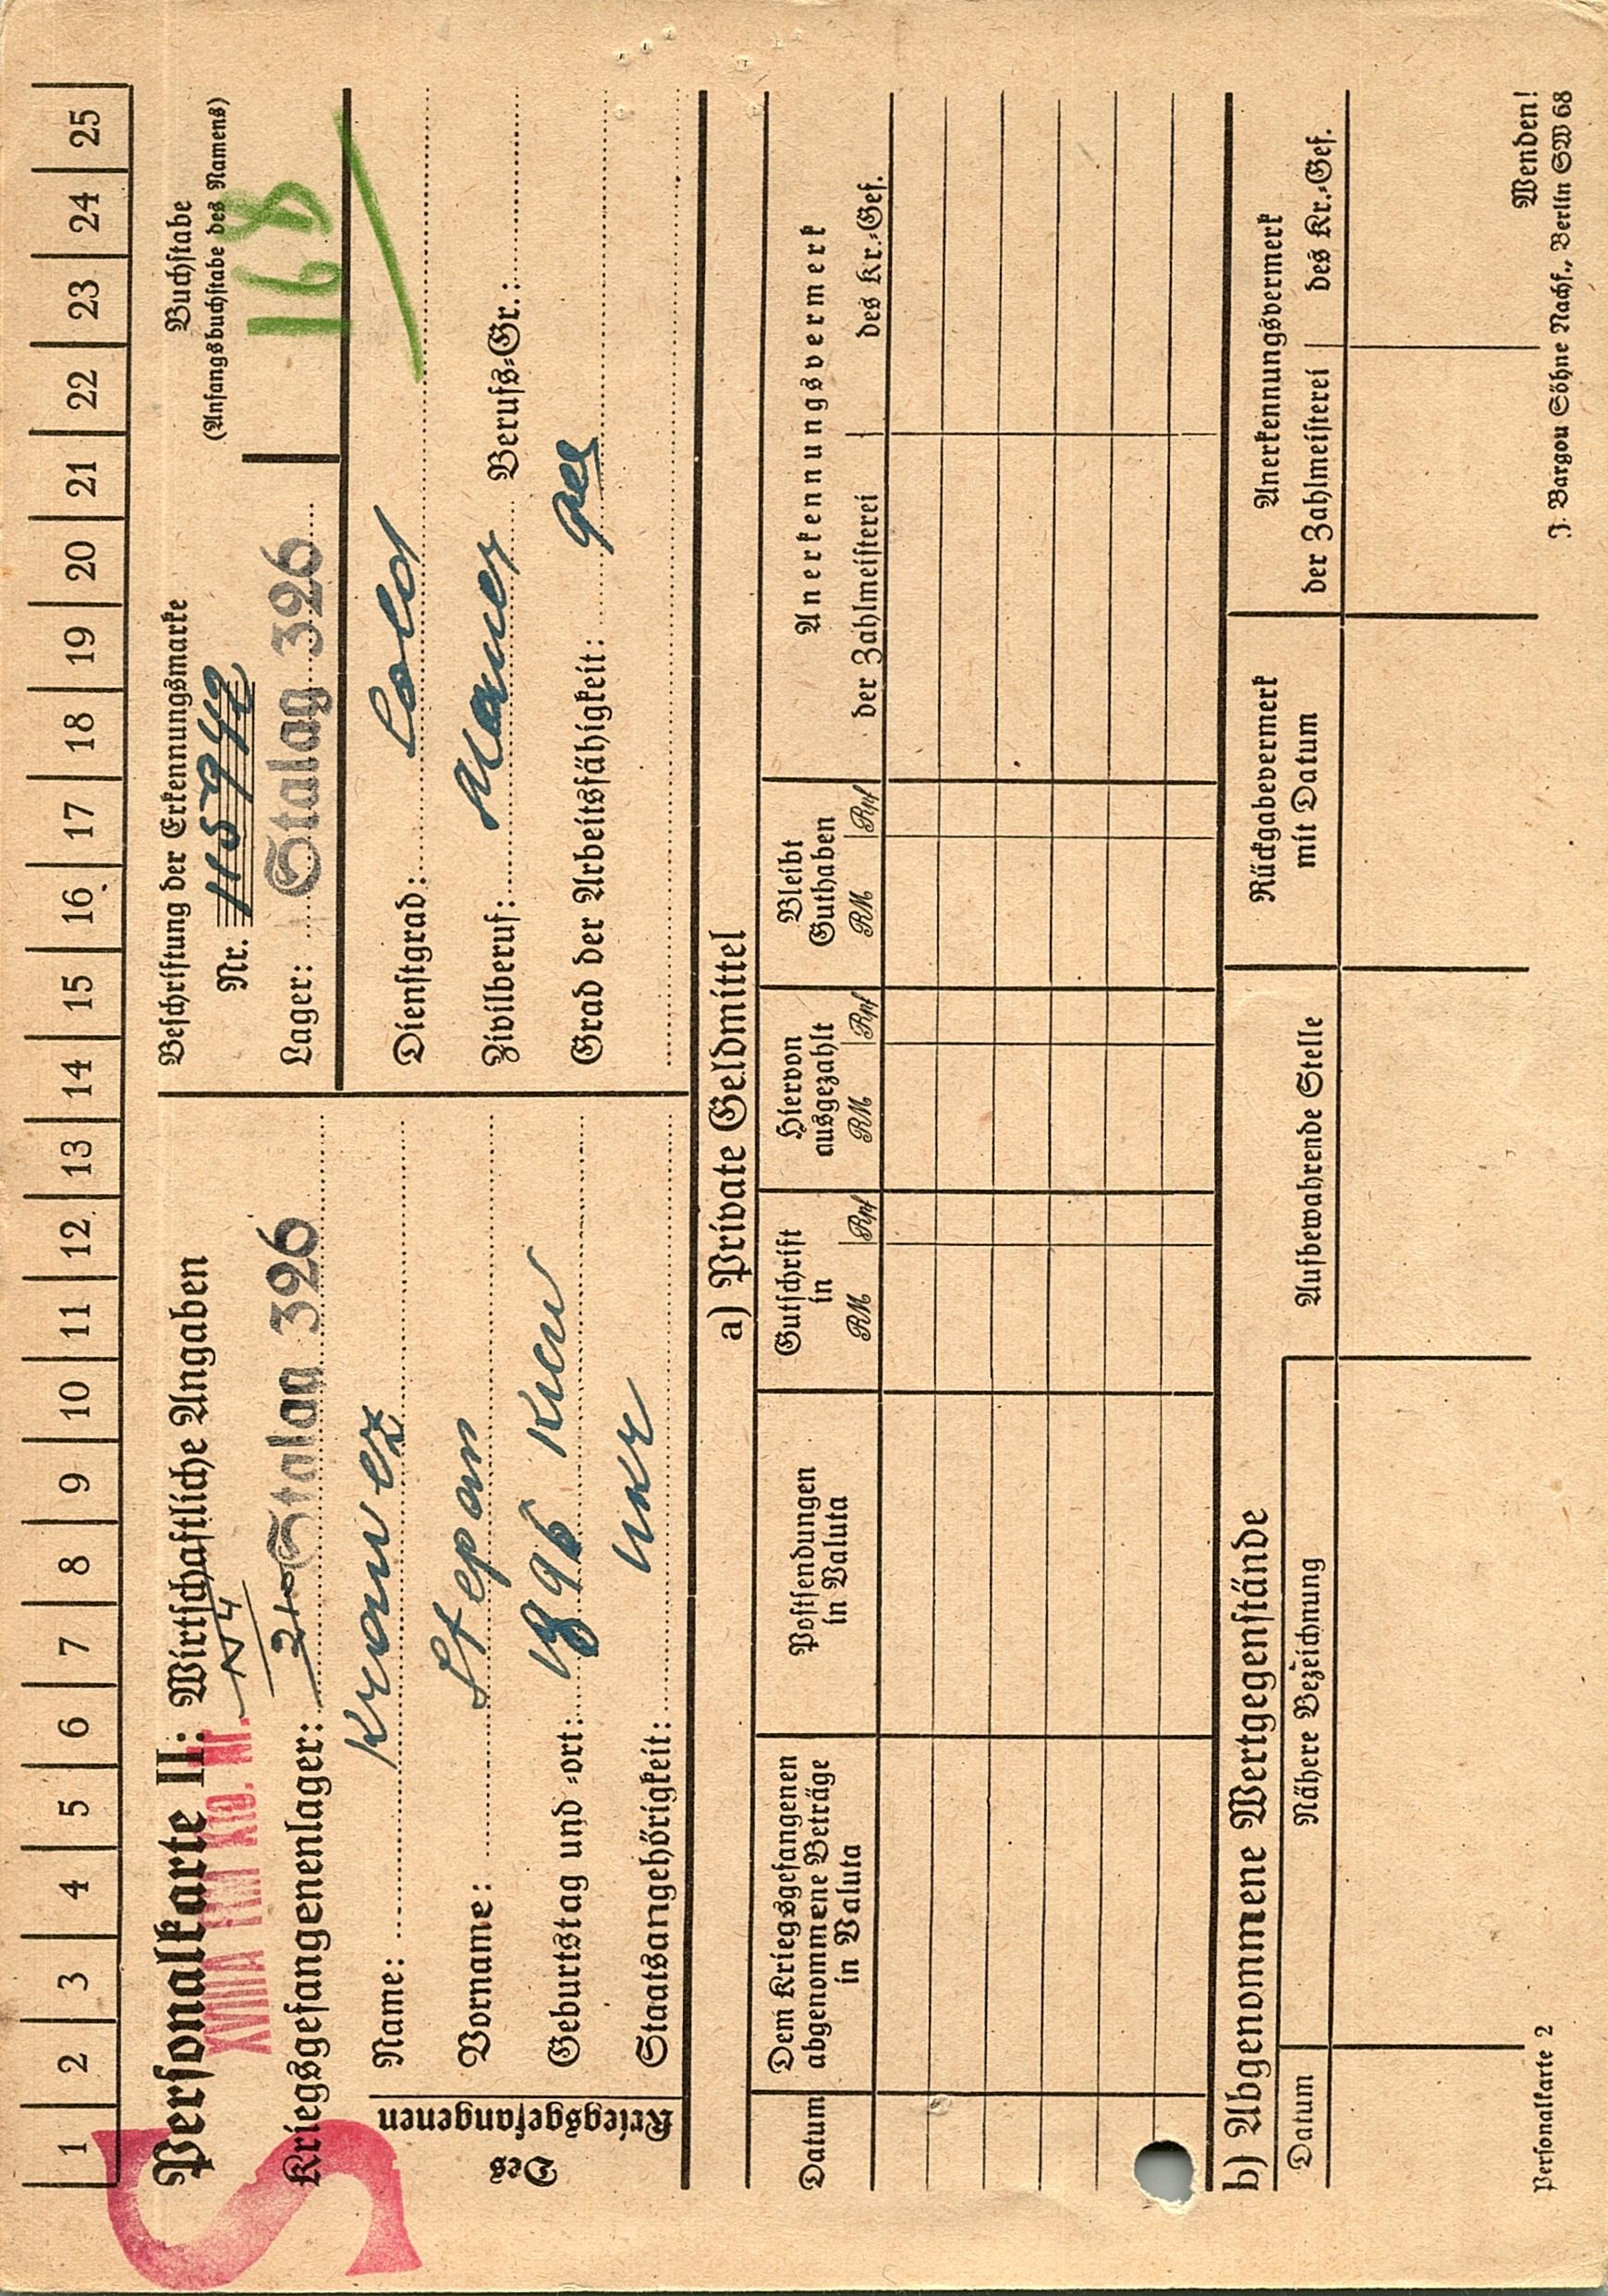 1 2 3 4 5 6 7 8 9 10 11 12 13 14 15 16 17 18 19 20 21 22 23 24 25
S
Personalkarte II: Wirtschaftliche Angaben
Kriegsgefangenenlager: Stalag 326
Beschriftung der Erkennungsmarke
Nr. 115942
Lager: Stalag 326
Buchstabe
(Anfangsbuchstabe des Namens)
168
Des Kriegsgefangenen
Name: Krawez
Vorname: Stepan
Geburtstag und -ort: 1896 Kiew
Staatsangehörigkeit: Ukr
Dienstgrad: Sold
Zivilberuf: Maurer Berufs-Gr.:
Grad der Arbeitsfähigkeit:
a) Private Geldmittel
Datum
Dem Kriegsgefangenen
abgenommene Beträge
in Valuta
Postsendungen
in Valuta
Gutschrift
in
RM Rpf
Hiervon
ausgezahlt
RM Rpf
Bleibt
Guthaben
RM Rpf
Anerkennungsvermerk
der Zahlmeisterei des Kr.-Gef.
b) Abgenommene Wertgegenstände
Datum
Nähere Bezeichnung
Aufbewahrende Stelle
Rückgabevermerk
mit Datum
Anerkennungsvermerk
der Zahlmeisterei des Kr.-Gef.
Wenden!
Personalkarte 2
J. Bargou Söhne Nachf., Berlin SW 68